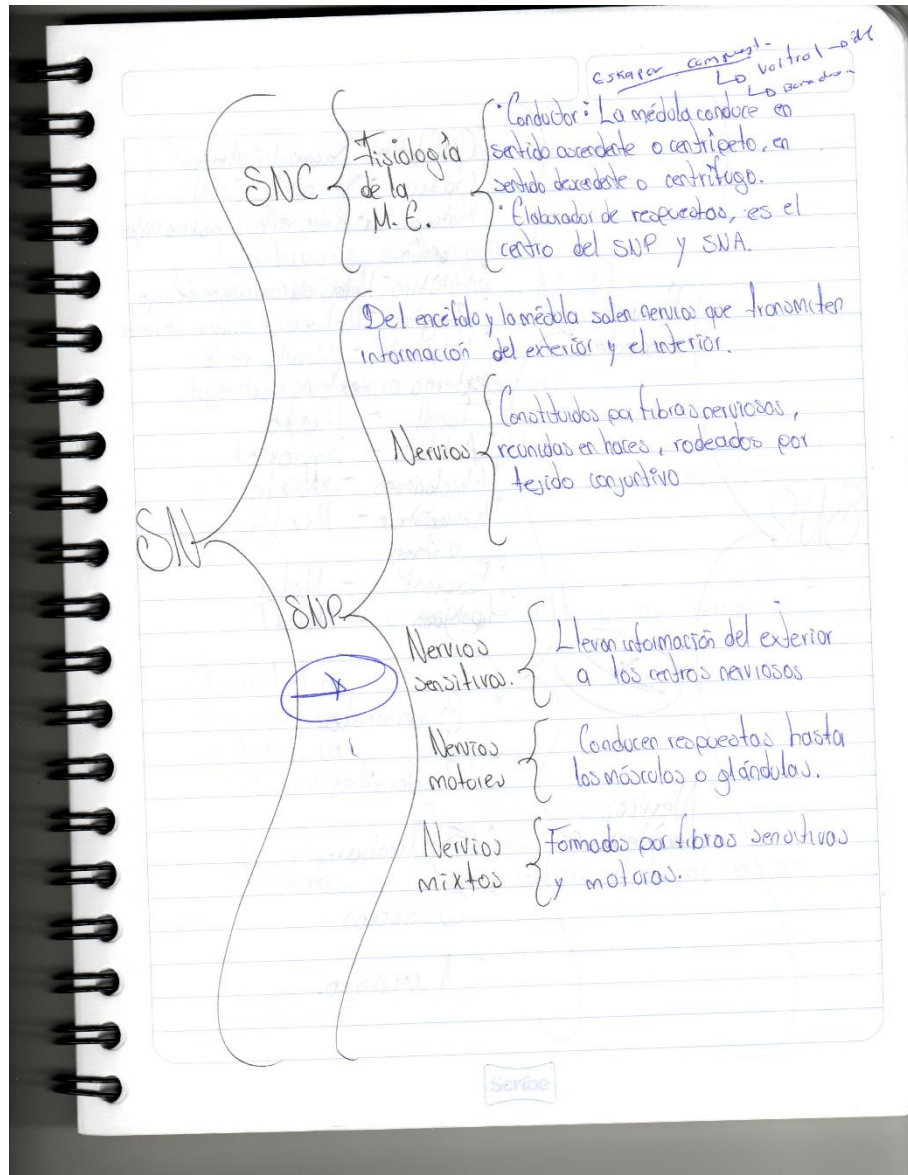 SN
SNC
Fisiología
de la
M. E.
• Conductor: La médula conduce en
sentido ascendente o centrípeto, en
sentido descendente o centrífugo.
• Elaborador de respuestas, es el
centro del SNP y SNA.
SNP
Del encéfalo y la médula salen nervios que transmiten
información del exterior y el interior.
Nervios
Constituidos por fibras nerviosas,
reunidas en haces, rodeados por
tejido conjuntivo
Nervios
sensitivos.
Llevan información del exterior
a los centros nerviosos
Nervios
motores
Conducen respuestas hasta
los músculos o glándulas.
Nervios
mixtos
Formados por fibras sensitivas
y motoras.
Scribe